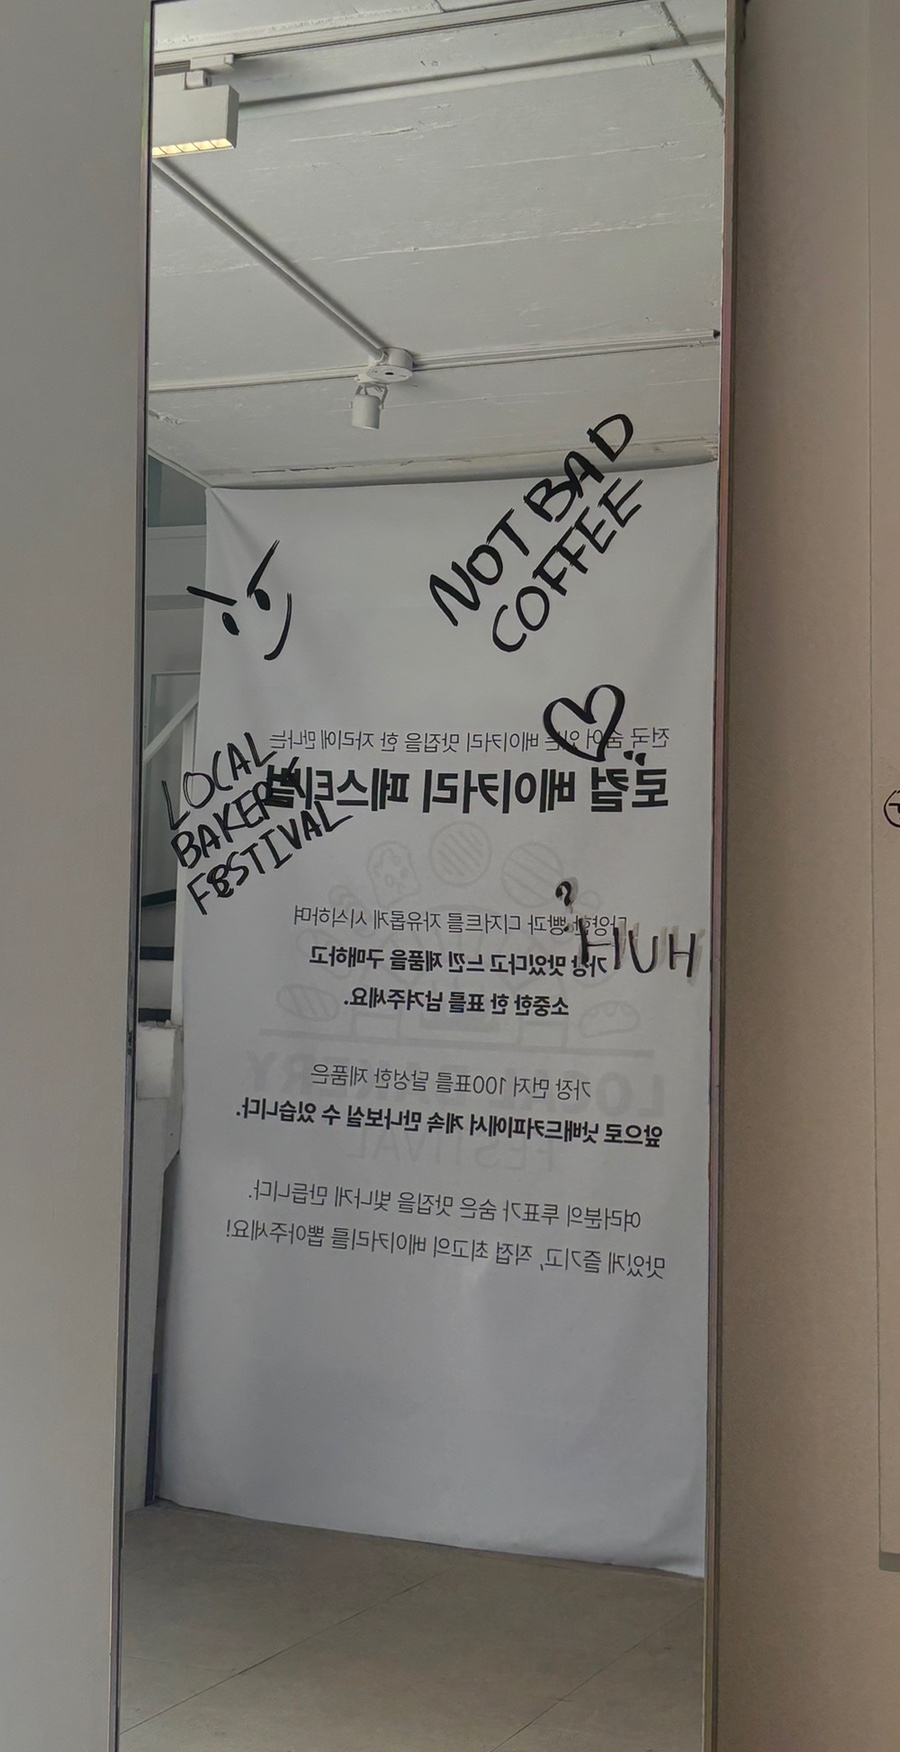 NOT BAD
COFFEE
LOCAL
BAKERY
FESTIVAL
전국 숨어있는 베이커리 맛집을 한 자리에 만나는
로컬 베이커리 페스티벌
?
HUH
다양한 빵과 디저트를 자유롭게 시식하며
가장 맛있다고 느낀 제품을 구매하고
소중한 한 표를 남겨주세요.
가장 먼저 100표를 달성한 제품은
앞으로 낫배드커피에서 계속 만나보실 수 있습니다.
LOCAL BAKERY
FESTIVAL
여러분의 투표가 숨은 맛집을 빛나게 만듭니다.
맛있게 즐기고, 직접 최고의 베이커리를 뽑아주세요!